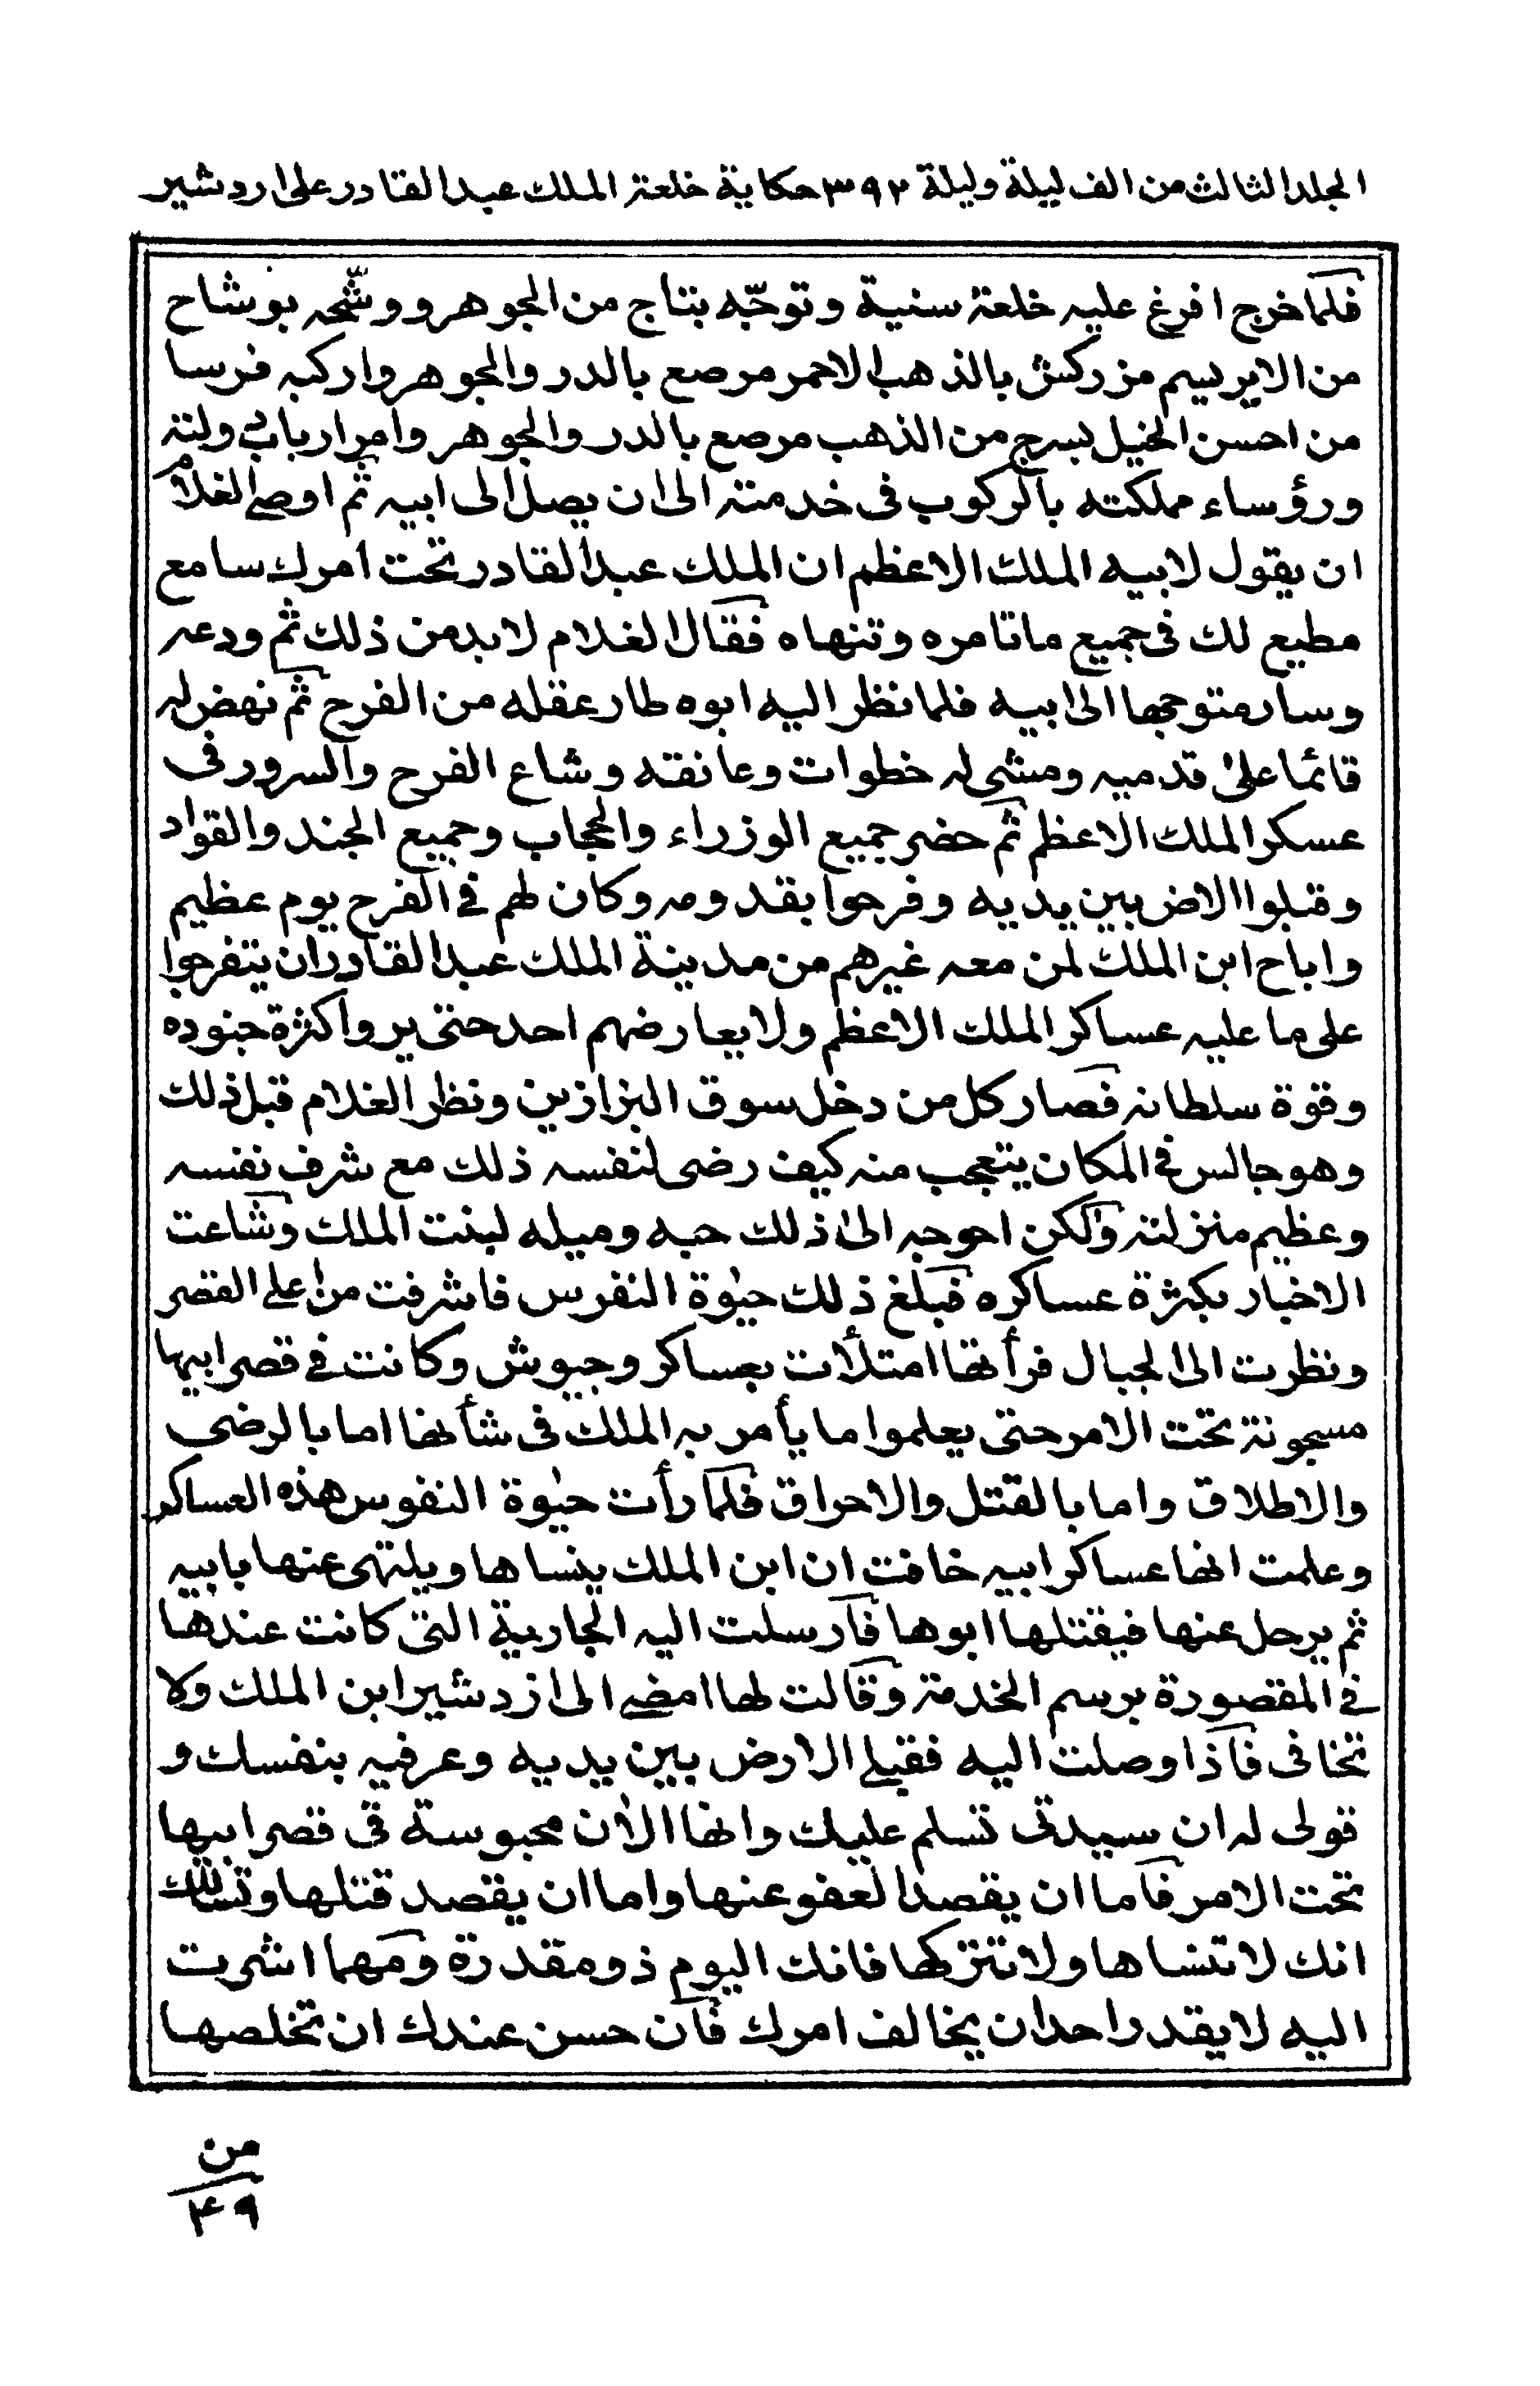 المجلد الثالث من الف ليلة وليلة ٣٩٢ حكاية خلعة الملك عبد القادر على اردشير
فلما خرج افرغ عليه خلعة سنية وتوجّه بتاج من الجوهر ووشّحه بوشاح
من الابريسم مزركش بالذهب الاحمر مرصع بالدر والجوهر واركبه فرسا
من احسن الخيل بسرج من الذهب مرصع بالدر والجوهر وامر ارباب دولته
ورؤساء مملكته بالركوب فى خدمته الى ان يصل الى ابيه ثم اوصى الغلام
ان يقول لابيه الملك الاعظم ان الملك عبد القادر تحت امرك سامع
مطيع لك فى جميع ما تامره وتنهاه فقال الغلام لا بد من ذلك ثم ودعه
وسار متوجها الى ابيه فلما نظر اليه ابوه طار عقله من الفرح ثم نهض له
قائما على قدميه ومشى له خطوات وعانقه وشاع الفرح والسرور فى
عسكر الملك الاعظم ثم حضر جميع الوزراء والحجاب وجميع الجند والقواد
وقبلوا الارض بين يديه وفرحوا بقدومه وكان لهم فى الفرح يوم عظيم
واباح ابن الملك لمن معه غيرهم من مدينة الملك عبد القادر ان يتفرجوا
على ما عليه عساكر الملك الاعظم ولا يعارضهم احد حتى يروا كثرة جنوده
وقوة سلطانه فصار كل من دخل سوق البزازين ونظر الغلام قبل ذلك
وهو جالس فى المكان يتعجب منه كيف رضى لنفسه ذلك مع شرف نفسه
وعظيم منزلته ولكن احوجه الى ذلك حبه وميله لبنت الملك وشاعت
الاخبار بكثرة عساكره فبلغ ذلك حيٰوة النفوس فاشرفت من اعلى القصر
ونظرت الى الجبال فرأتها امتلأت بعساكر وجيوش وكانت فى قصر ابيها
مسجونة تحت الامر حتى يعلموا ما يأمر به الملك فى شأنها اما بالرضى
والاطلاق واما بالقتل والاحراق فلما رأت حيٰوة النفوس هذه العساكر
وعلمت انها عساكر ابيه خافت ان ابن الملك ينساها ويلتهى عنها بابيه
ثم يرحل عنها فيقتلها ابوها فارسلت اليه الجارية التى كانت عندها
فى المقصورة برسم الخدمة وقالت لها امضى الى ازدشير ابن الملك ولا
تخافى فاذا وصلت اليه فقبلى الارض بين يديه وعرفيه بنفسك و
قولى له ان سيدتى تسلم عليك وانها الاٰن محبوسة فى قصر ابيها
تحت الامر فاما ان يقصد العفو عنها واما ان يقصد قتلها وتسالك
انك لا تنساها ولا تتركها فانك اليوم ذو مقدرة ومهما اشرت
اليه لا يقدر احد ان يخالف امرك فان حسن عندك ان تخلصها
من
٤٩